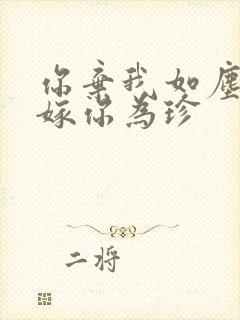 你弃我如尘
嫁你为珍
二将